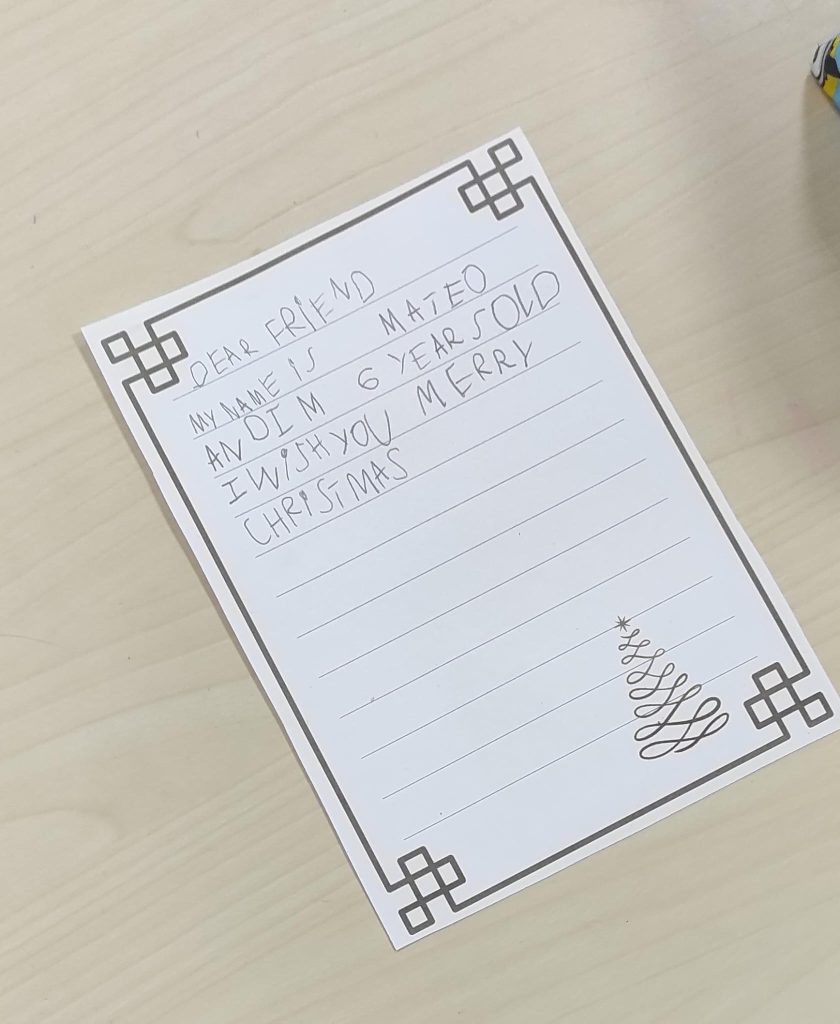 DEAR FRIEND
MY NAME IS MATEO
AND IM 6 YEARS OLD
I WISH YOU MERRY
CHRISTMAS